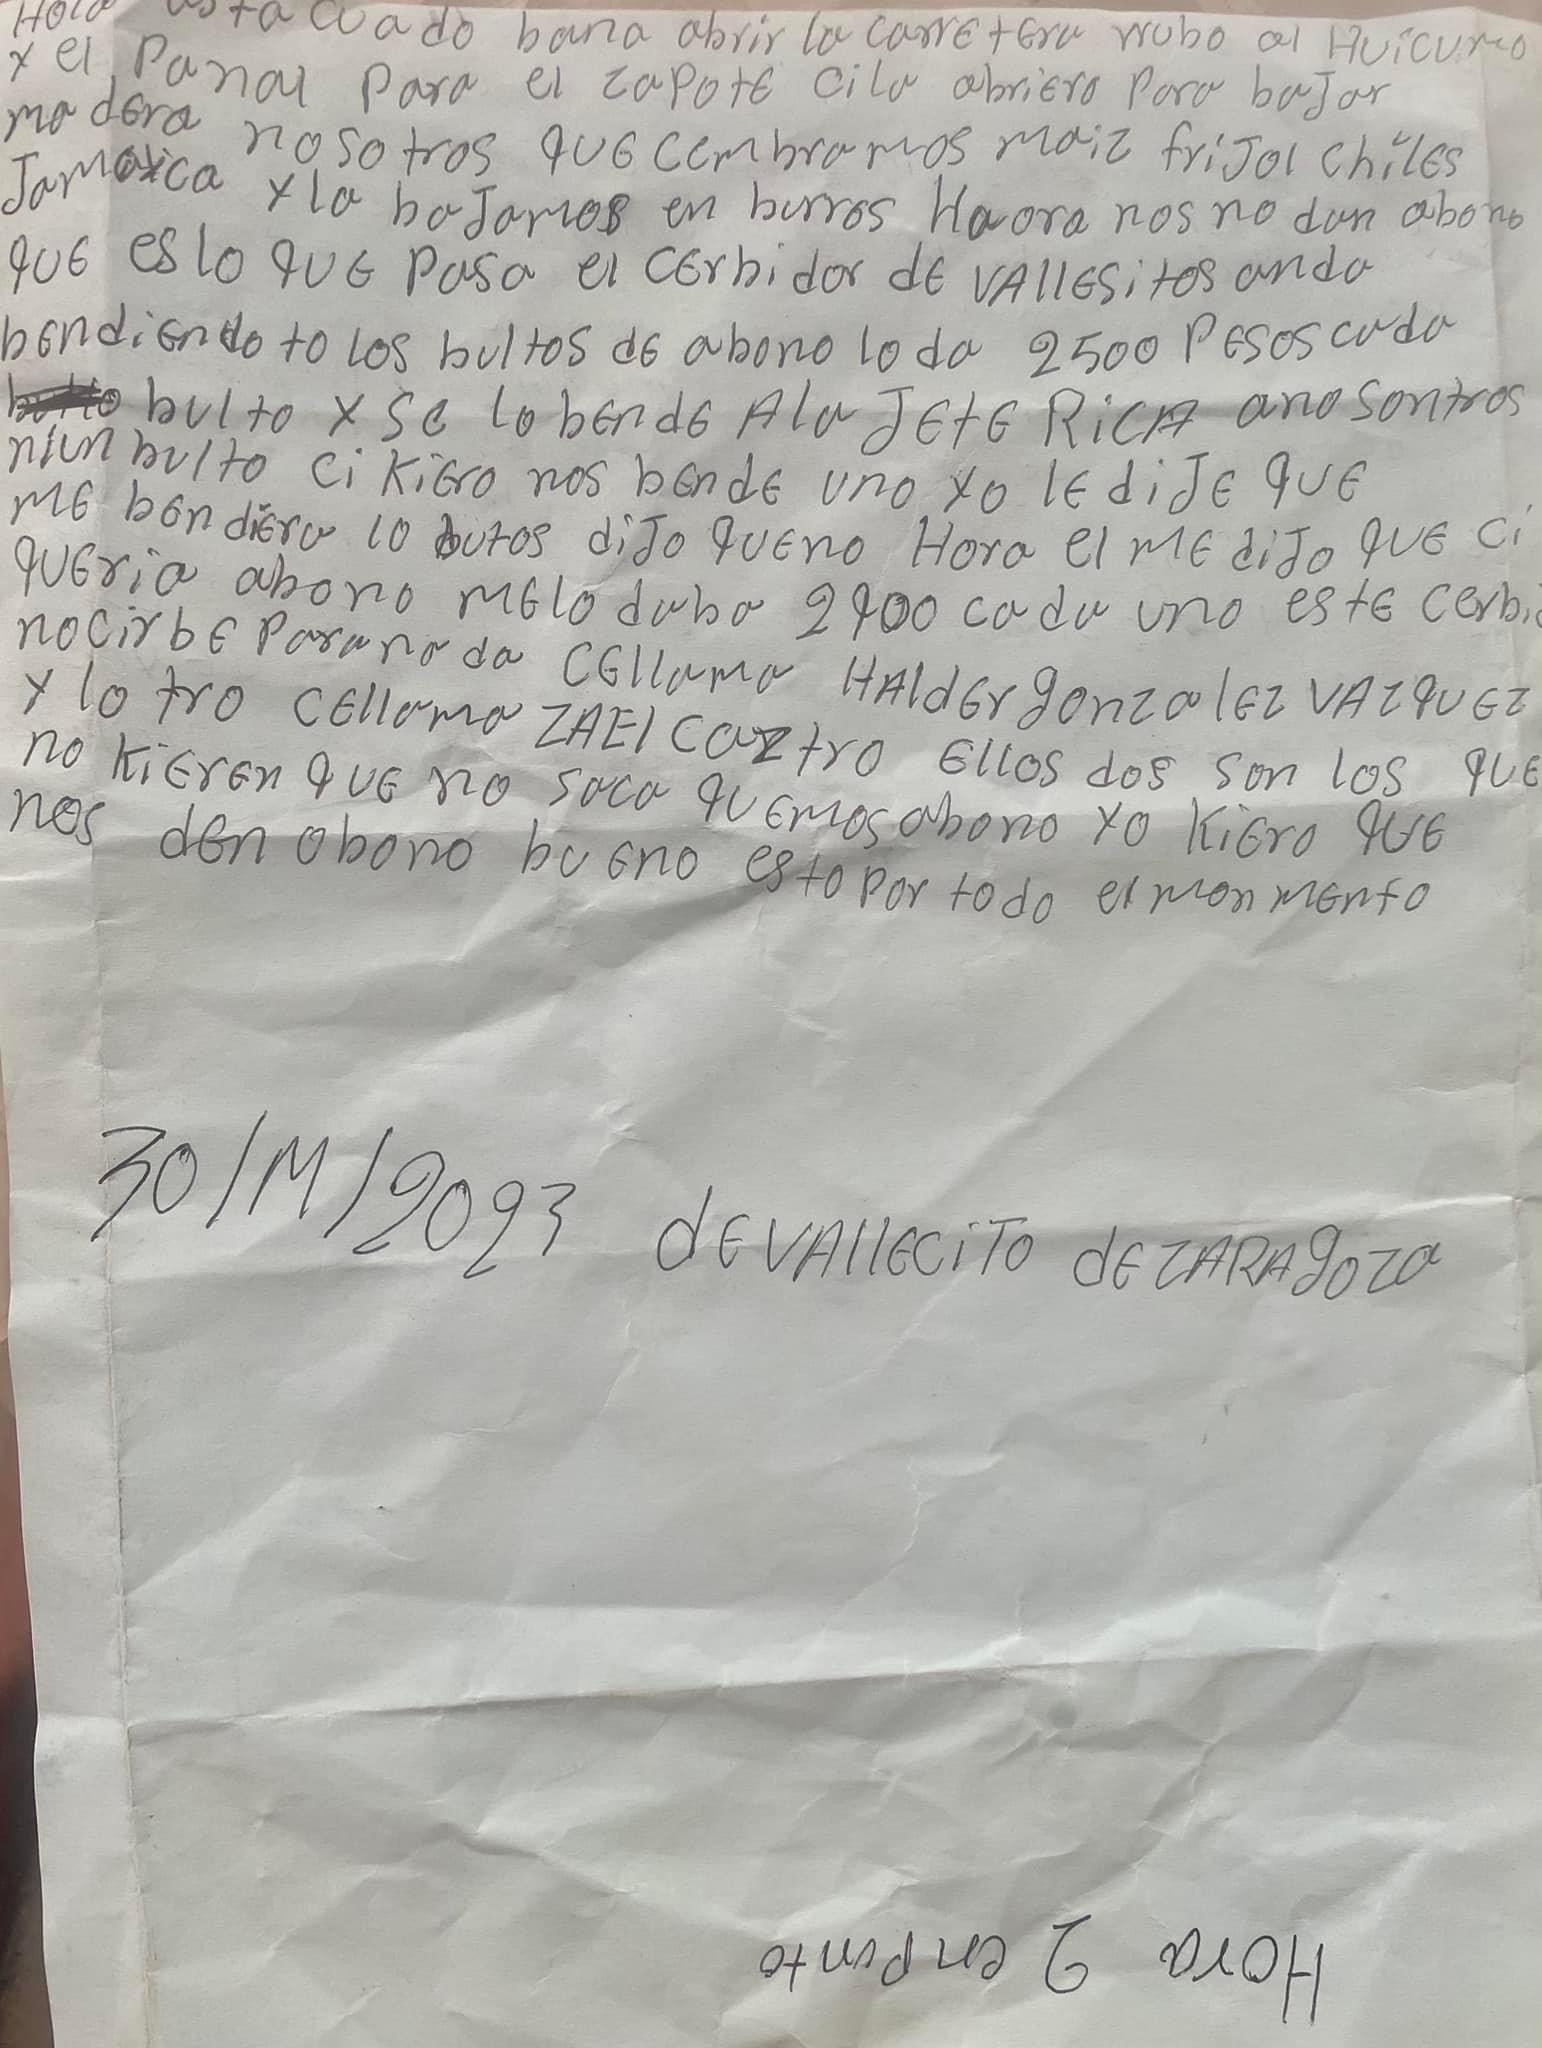 Hola asta cuado bana abrir la carretera rrubo al Huicumo
y el Panal Para el zapote ci la abriero Para bajar
madera nosotros que cembramos maiz frijol chiles
Jamaica y la bajamos en burros Haora nos no dan abono
que es lo que Pasa el cerbidor de VAllesitos anda
bendiendo to los bultos de abono lo da 2500 Pesos cada
bulto y se lo bende A la Jete RicA anosontros
niun bulto ci kiero nos bende uno yo le dije que
me bendiera lo butos dijo queno Hora el me dijo que ci
queria abono melo daba 2900 cada uno este cerbi
nocirbe Paranada cellama HAlder gonzalez VAzquez
y lo tro cellama ZAEl Caztro Ellos dos son los que
no kieren que no saca quemos abono yo kiero que
nos den obono bueno esto por todo el monmento
30/M/2023 deVAllecito deZARAgoza
Hora 2 enPunto